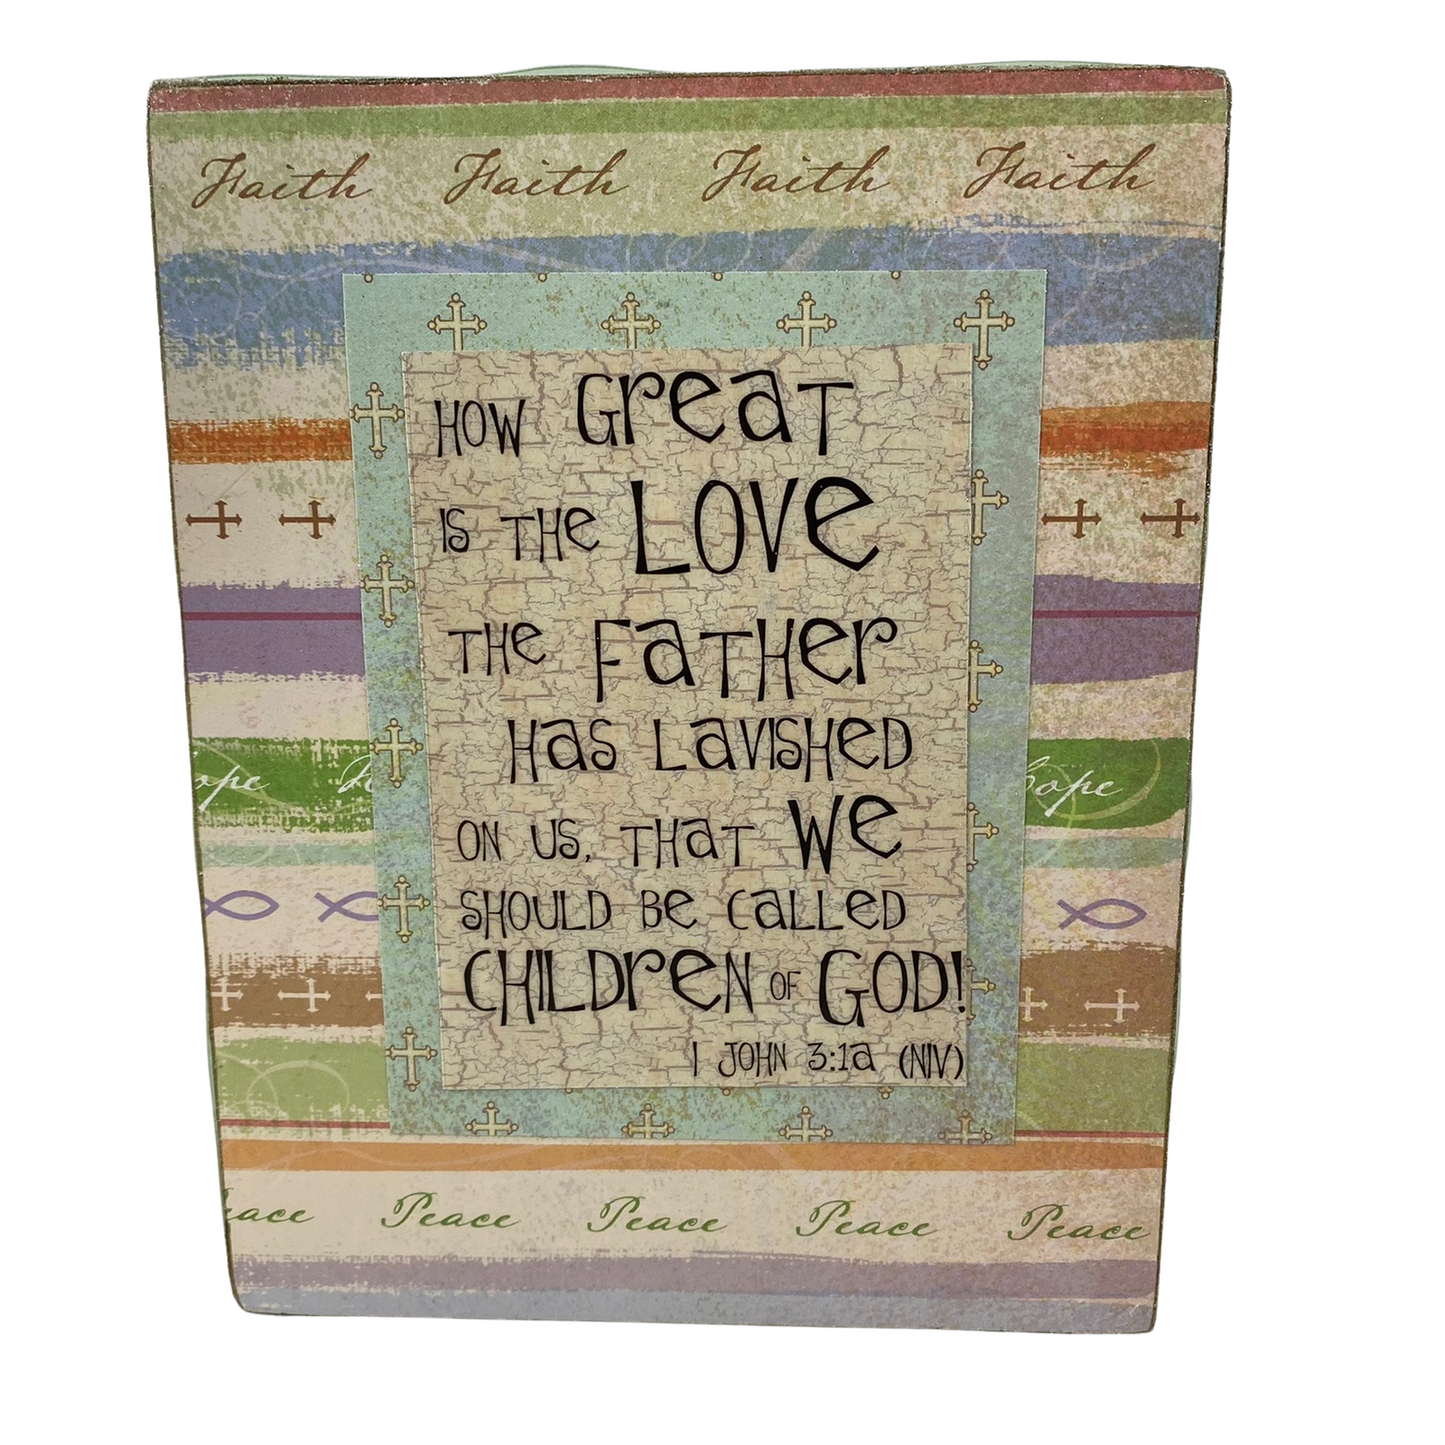 Faith Faith Faith Faith
HOW Great
IS THE LOVE
THE FaTHer
Has LaVISHeD
ON US, THaT We
SHOULD Be CaLLeD
CHILDreN OF GOD!
1 JOHN 3:1a (NIV)
ope
hope
eace Peace Peace Peace Peace